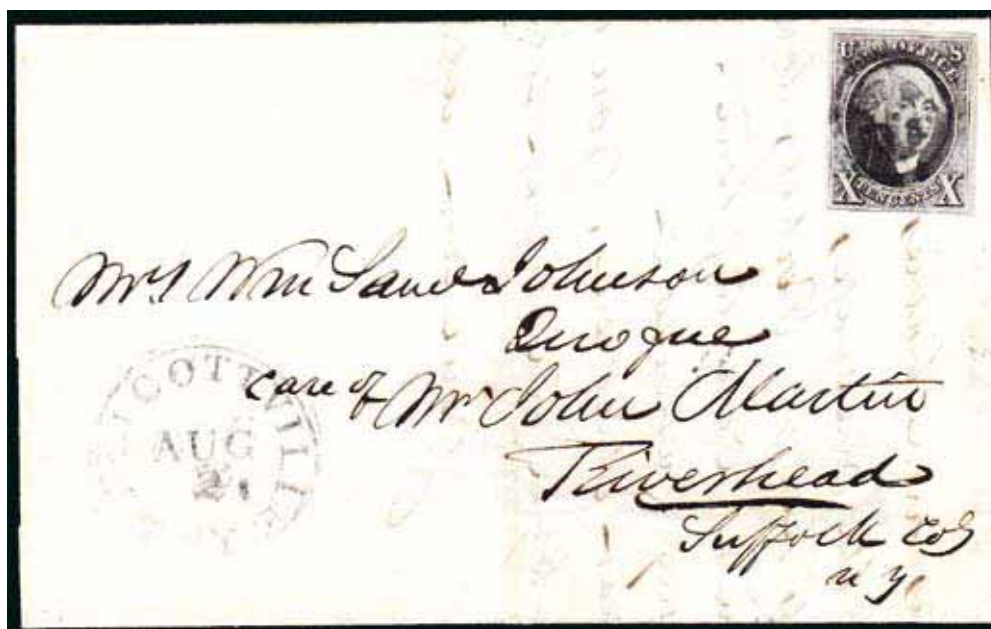 U S
POST OFFICE
X TEN CENTS X
Mrs Wm Johnson
Quogue
care of Mr John Martin
Riverhead
Suffolk Co
n y
AUG